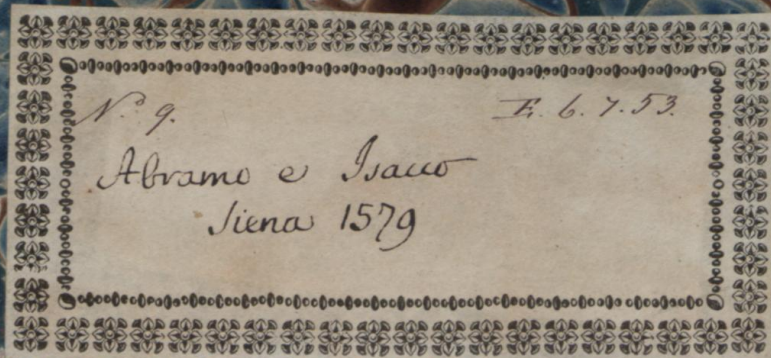 N.o 9. E. 6. 7. 53.
Abramo e Isacco
Siena 1579